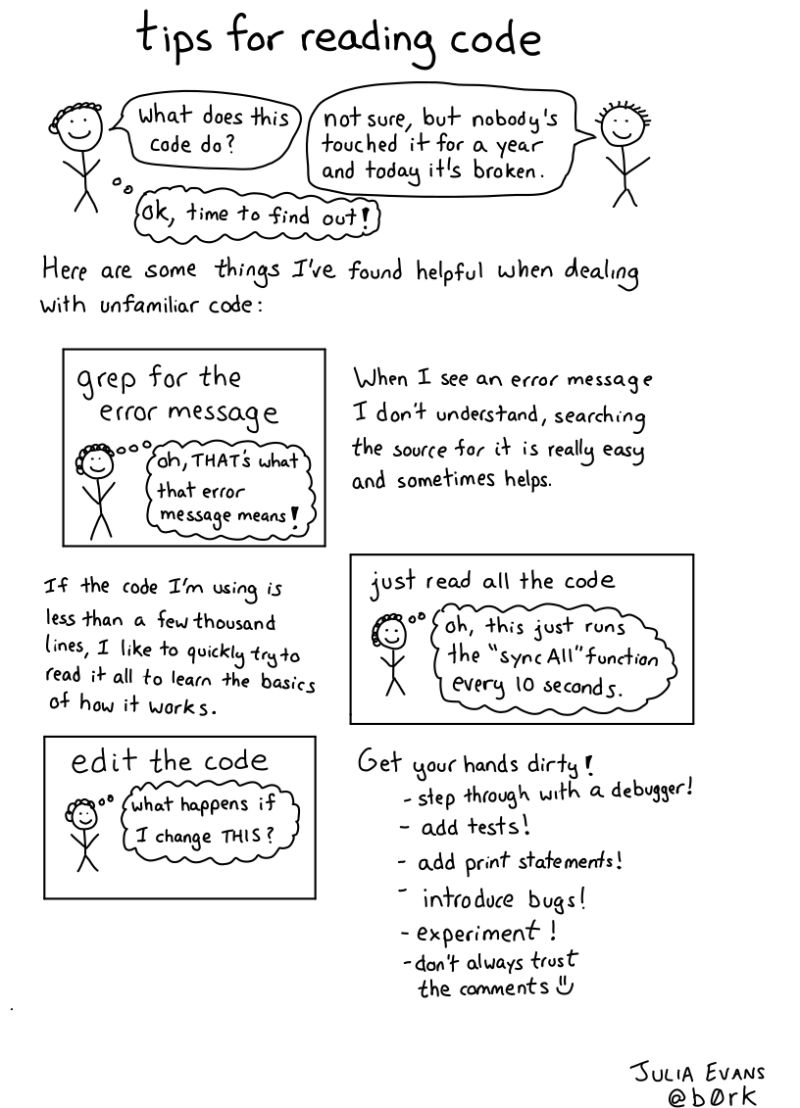 tips for reading code
What does this
code do?
not sure, but nobody's
touched it for a year
and today it's broken.
ok, time to find out!
Here are some things I've found helpful when dealing
with unfamiliar code:
grep for the
error message
oh, THAT's what
that error
message means!
When I see an error message
I don't understand, searching
the source for it is really easy
and sometimes helps.
If the code I'm using is
less than a few thousand
lines, I like to quickly try to
read it all to learn the basics
of how it works.
just read all the code
oh, this just runs
the "sync All" function
every 10 seconds.
edit the code
what happens if
I change THIS?
Get your hands dirty!
- step through with a debugger!
- add tests!
- add print statements!
- introduce bugs!
- experiment!
- don't always trust
the comments
JULIA EVANS
@b0rk